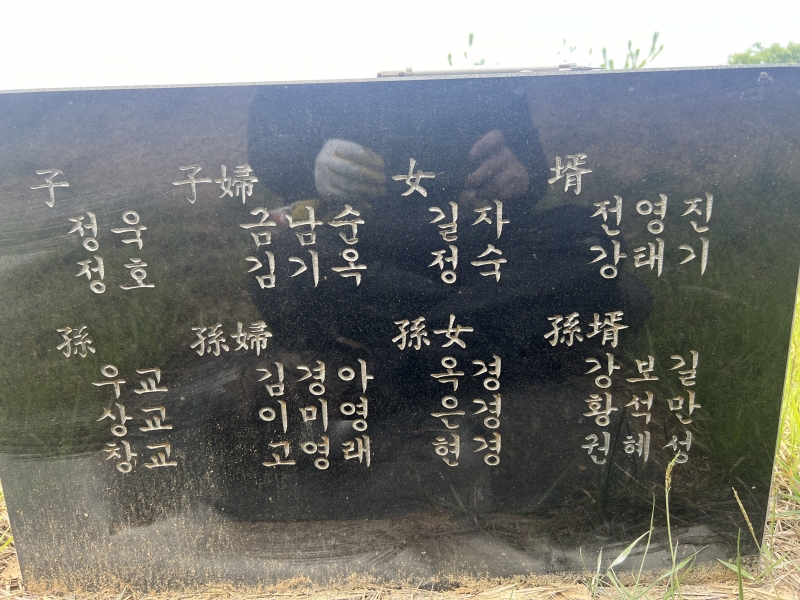 子 子婦 女 壻
정욱 금남순 길자 전영진
정호 김기옥 정숙 강태기
孫 孫婦 孫女 孫壻
우교 김경아 옥경 강보길
상교 이미영 은경 황석만
창교 고영래 현경 권혜성